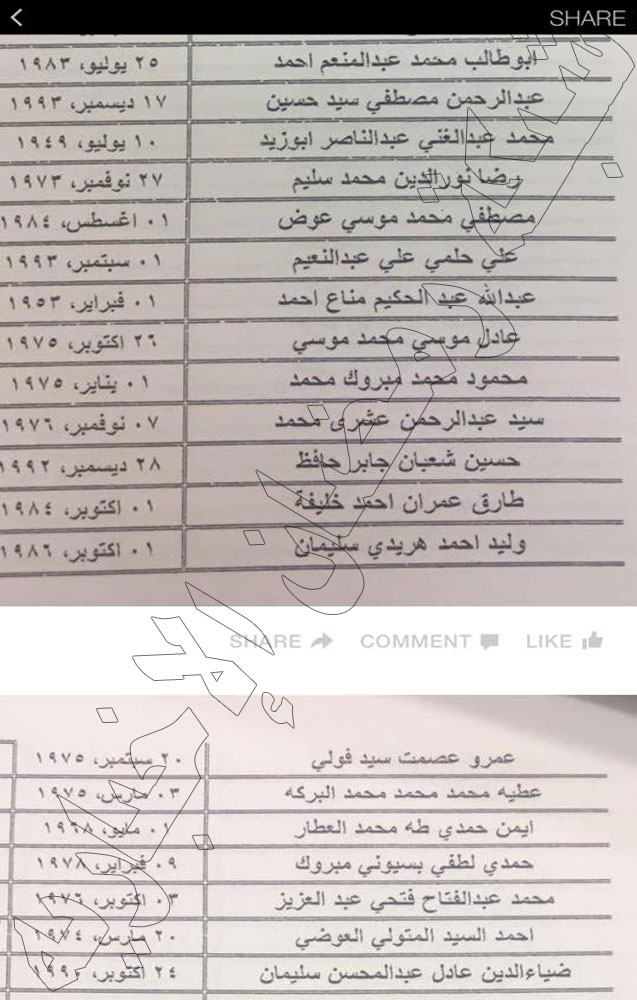 SHARE
ابوطالب محمد عبدالمنعم احمد ٢٥ يوليو، ١٩٨٣
عبدالرحمن مصطفي سيد حسين ١٧ ديسمبر، ١٩٩٣
محمد عبدالغني عبدالناصر ابوزيد ١٠ يوليو، ١٩٤٩
رضا نورالدين محمد سليم ٢٧ نوفمبر، ١٩٧٣
مصطفي محمد موسي عوض ٠١ اغسطس، ١٩٨٤
علي حلمي علي عبدالنعيم ٠١ سبتمبر، ١٩٩٣
عبدالله عبد الحكيم مناع احمد ٠١ فبراير، ١٩٥٣
عادل موسي محمد موسي ٢٦ اكتوبر، ١٩٧٥
محمود محمد مبروك محمد ٠١ يناير، ١٩٧٥
سيد عبدالرحمن عشرى محمد ٠٧ نوفمبر، ١٩٧٦
حسين شعبان جابر حافظ ٢٨ ديسمبر، ١٩٩٢
طارق عمران احمد خليفة ٠١ اكتوبر، ١٩٨٤
وليد احمد هريدي سليمان ٠١ اكتوبر، ١٩٨٦
SHARE COMMENT LIKE
عمرو عصمت سيد فولي ٢٠ سبتمبر، ١٩٧٥
عطيه محمد محمد محمد البركه ٠٣ مارس، ١٩٧٥
ايمن حمدي طه محمد العطار ٠١ مايو، ١٩٦٨
حمدي لطفي بسيوني مبروك ٠٩ فبراير، ١٩٧٨
محمد عبدالفتاح فتحي عبد العزيز ٠٣ اكتوبر، ١٩٧٦
احمد السيد المتولي العوضي ٢٠ مارس، ١٩٧٤
ضياءالدين عادل عبدالمحسن سليمان ٢٤ اكتوبر،